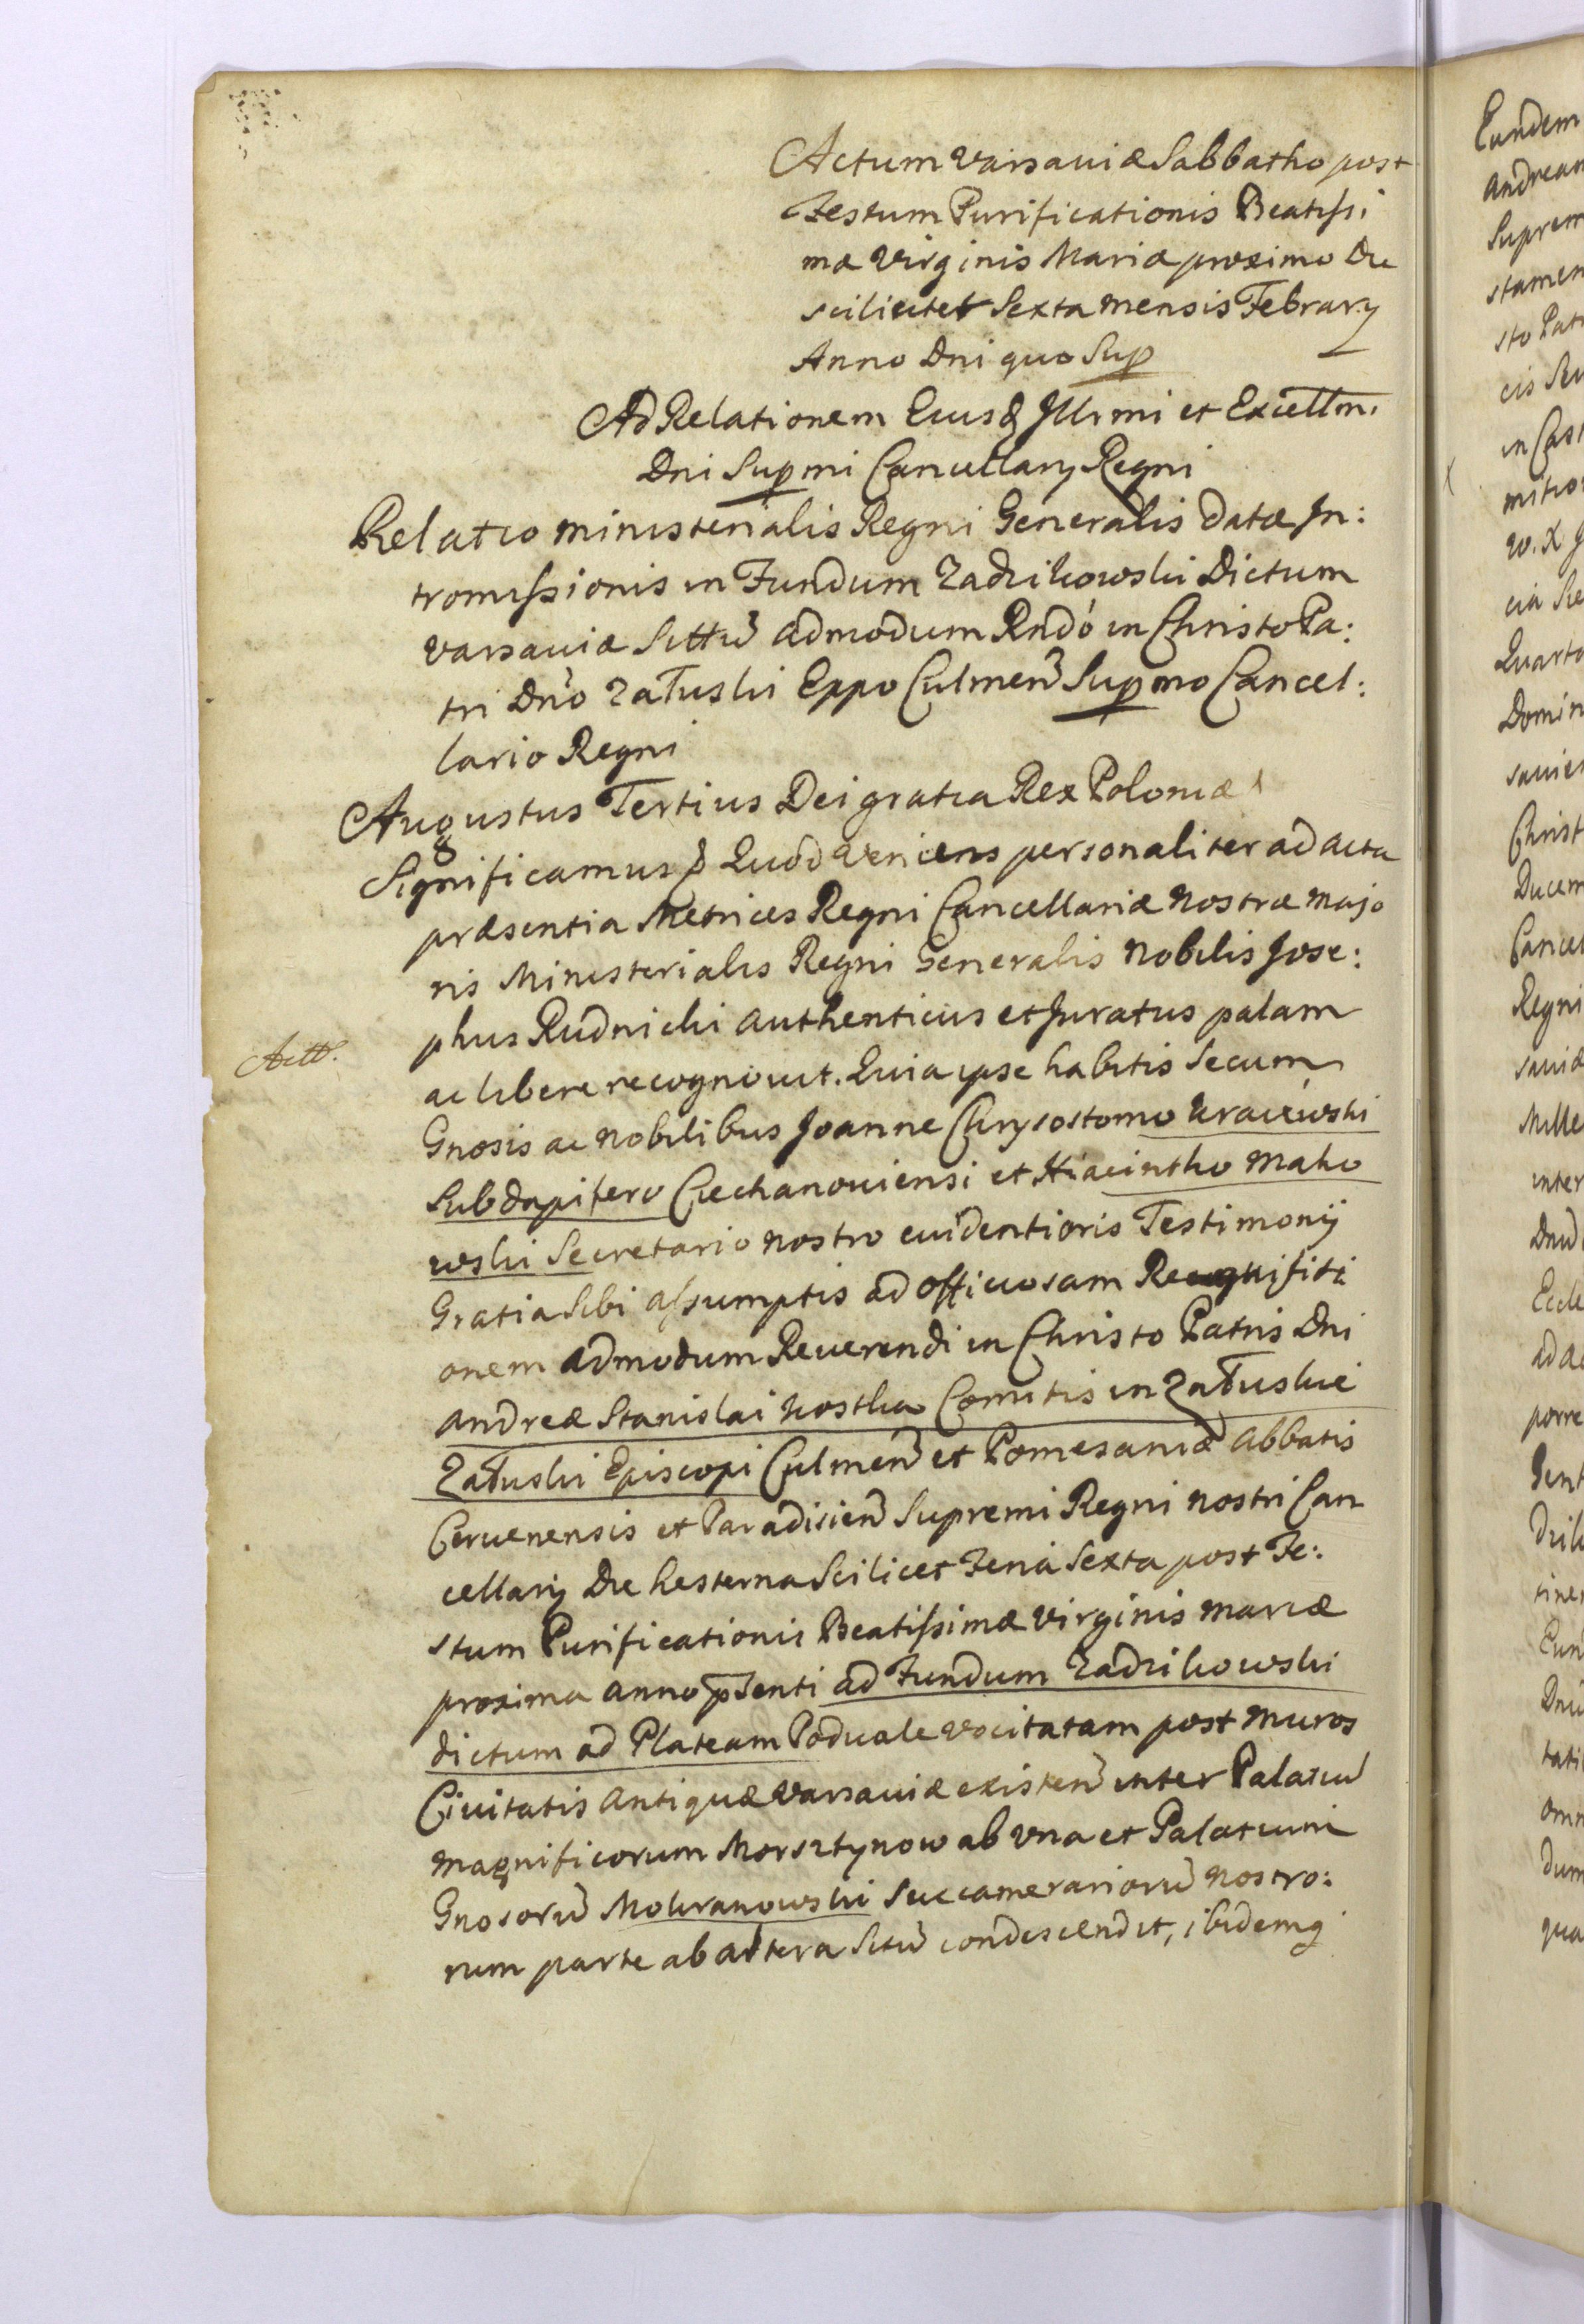 Actum Varsaviæ Sabbatho post
Festum Purificationis Beatissi
mæ Virginis Mariæ proximo Die
scilicitet Sexta mensis Februarÿ
Anno Dni quo Sup
Ad Relationem Eiusd Illrmi et Excellm.
Dni Supmi Cancellarÿ Regni
Relatio Ministerialis Regni Generalis Datæ In:
tromissionis in Fundum Zadzikowski Dictum
Varsaviæ Sittu admodum Rndo in Christo Pa:
tri Dno Załuski Eppo Culmen Supmo Cancel:
lario Regni
Augustus Tertius Dei gratia Rex Poloniæ
Significamus Quod Veniens personaliter ad acta
præsentia Metrices Regni Cancellariæ Nostræ Majo
ris Ministerialis Regni Generalis Nobilis Jose:
phus Rudnicki authenticus et Juratus palam
Actt.
ac libere recognovit. Quia ipse habitis Secum
Gnosis ac Nobilibus Joanne Chrysostomo Kraiewski
Subdapifero Ciechanoviensi et Hiacintho Mako
wski Secretario nostro evidentioris Testimonÿ
Gratia Sibi assumptis ad officiosam Requisiti
onem admodum Reverendi in Christo Patris Dni
Andreæ Stanislai Kostka Comitis in Załuskie
Załuski Episcopi Culmen et Pomesaniæ Abbatis
Cervenensis et Paradisien Supremi Regni nostri Can
cellarÿ Die hesterna Scilicet Feria Sexta post Fe:
stum Purificationis Beatissimæ Virginis Mariæ
proxima anno psenti ad Fundum Zadzikowski
dictum ad Plateam Podwale vocitatam post Muros
Civitatis Antiquæ Varsaviæ existen inter Palatiu
Magnificorum Morsztynow ab una et Palatium
Gnosoru Mokranowski Succamerarioru Nostro:
rum parte ab altera Situ condescendit, ibidemq
Eundem
Andream
Suprem
stamen
sto Patr
in Cast
cia
Quarta
Domin
Christ
Ducem
Cancel
Regni
Mille
inter
Eccle
porre
omn
dum
qua